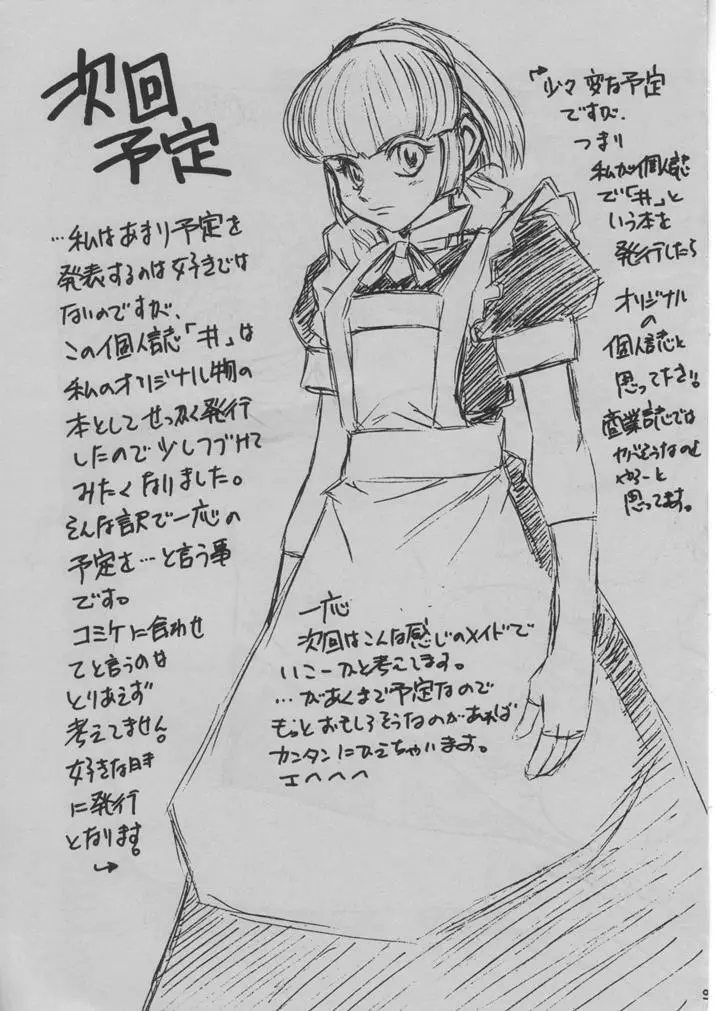 次回
予定
…私はあまり予定を
発表するのは好きでは
ないのですが、
この個人誌「井」は
私のオリジナル物の
本としてせっかく発行
したので少しつづけて
みたくなりました。
そんな訳で一応の
予定を…と言う事
です。
コミケに合わせ
てと言うのは
とりあえず
考えてません。
好きな時
に発行
となります。
→
少々変な予定
ですが、
つまり
私が個人誌
で「井」と
いう本を
発行したら
オリジナル
の
個人誌と
思って下さい。
商業誌では
ヤバそうなのも
やろーと
思ってます。
一応
次回はこんな感じのメイドで
いこーかと考えてます。
…があくまで予定なので
もっとおもしろそうなのがあれば
カンタンにかえちゃいます。
エへへへ
9